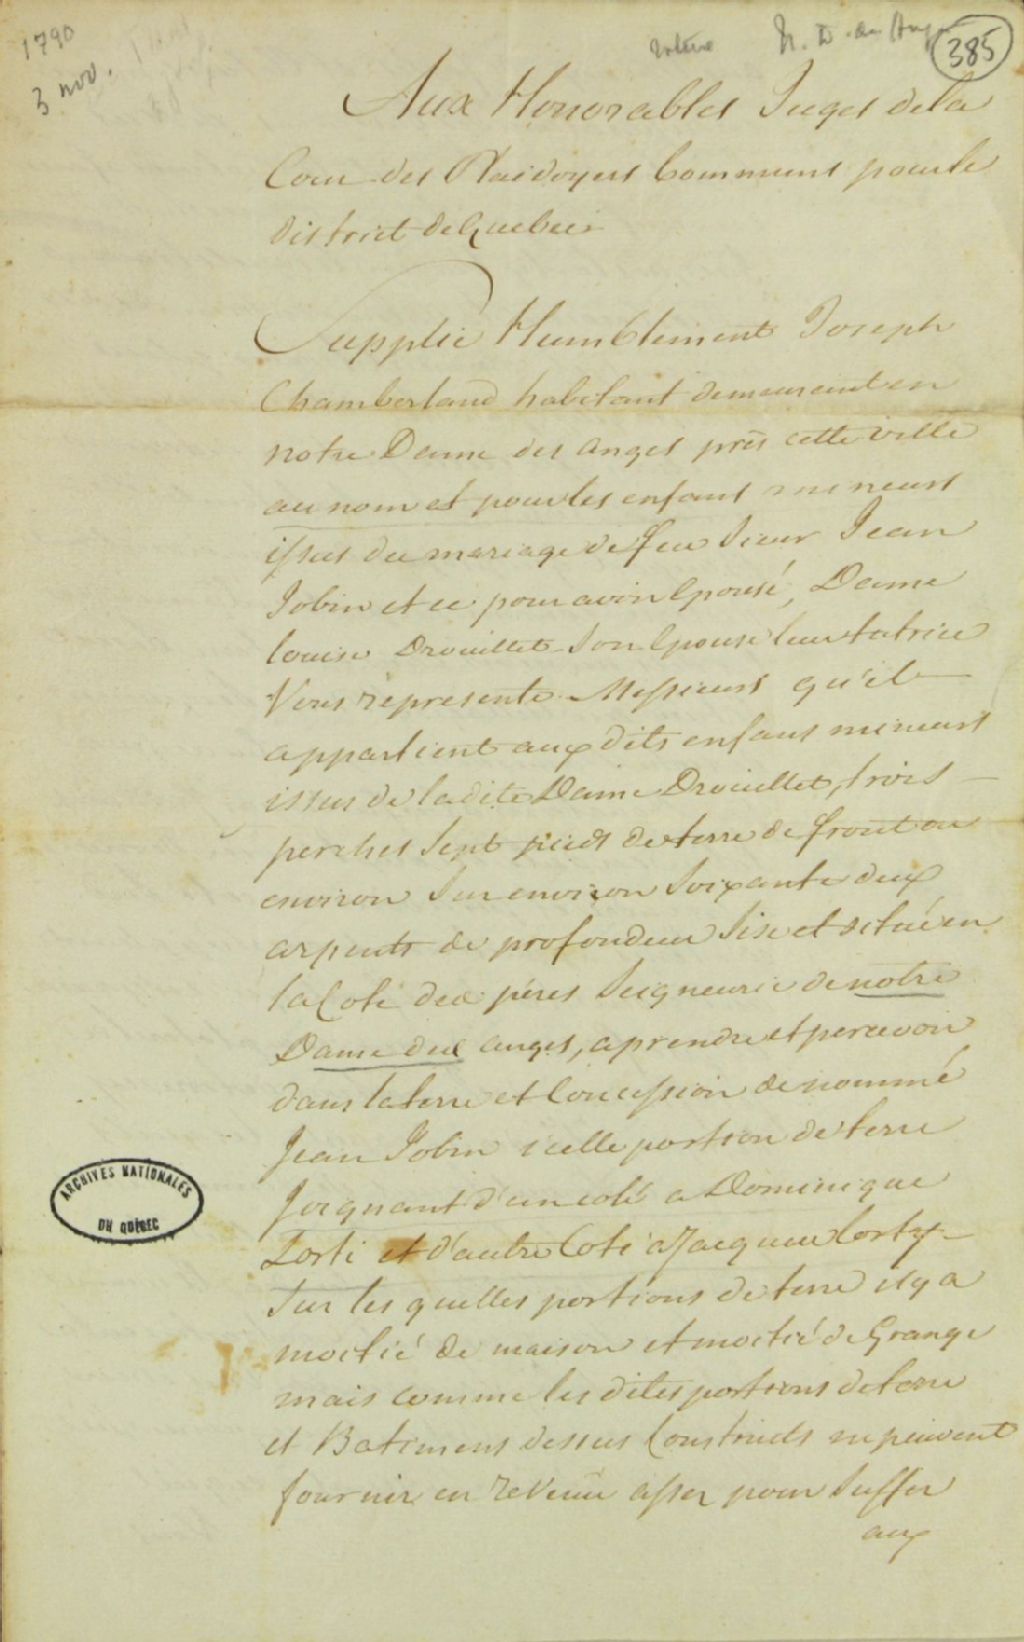 1790
3 nov.
N. D. des Anges
385
Aux Honorables Juges dela
Cour des Plaidoyers Communs pour le
district de Quebec
Supplie Humblement Joseph
Chamberland habitant demeurant en
notre Dame des anges près cette ville
au nom et pour les enfans mineurs
issus du mariage de feu Sieur Jean
Jobin et ce pour avoir Epousé, Dame
louise Drouillet Son Epouse leur tutrice
Vous represente Messieurs qu'il
appartient aux dits enfans mineurs
issus de la dite Dame Drouillet, trois
perches Sept pieds de terre de front ou
environ Sur environ Soixante deux
arpents de profondeur Sise et situé en
la Coté des péres Seigneurie de notre
Dame des anges, a prendre et percevoir
dans la terre et Concession de nommé
Jean Jobin icelle portion de terre
Joignant d'un coté a Dominique
Lorti et d'autre Coté a Jacques lorty
Sur les quelles portions de terre il y a
moctié de maison et moctié de Grange
mais comme les dites portions de terre
et Batimens dessus Construits ne peuvent
fournir un revenu assez pour Suffir
aux
ARCHIVES NATIONALES
DU QUÉBEC